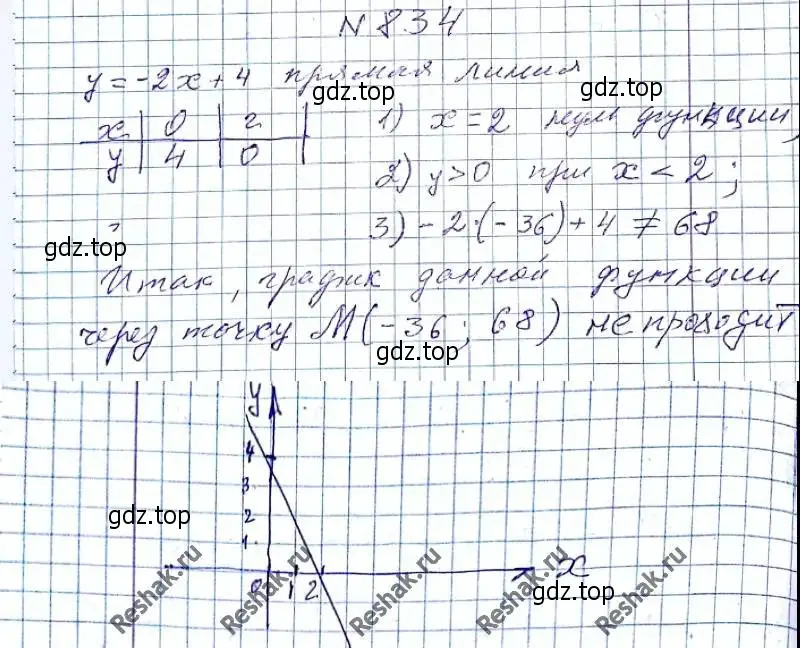 N 834
y = -2x + 4 прямая линия
gdz.top
x | 0 | 2
y | 4 | 0
1) x = 2 нуль функции,
gdz.top
2) y > 0 при x < 2 ;
3) -2·(-36) + 4 ≠ 68
Итак, график данной функции
через точку M(-36; 68) не проходит
gdz.top
y
4
3
2
1
gdz.top
0 1 2
x
gdz.top
Reshak.ru Reshak.ru Reshak.ru Reshak.ru Reshak.ru